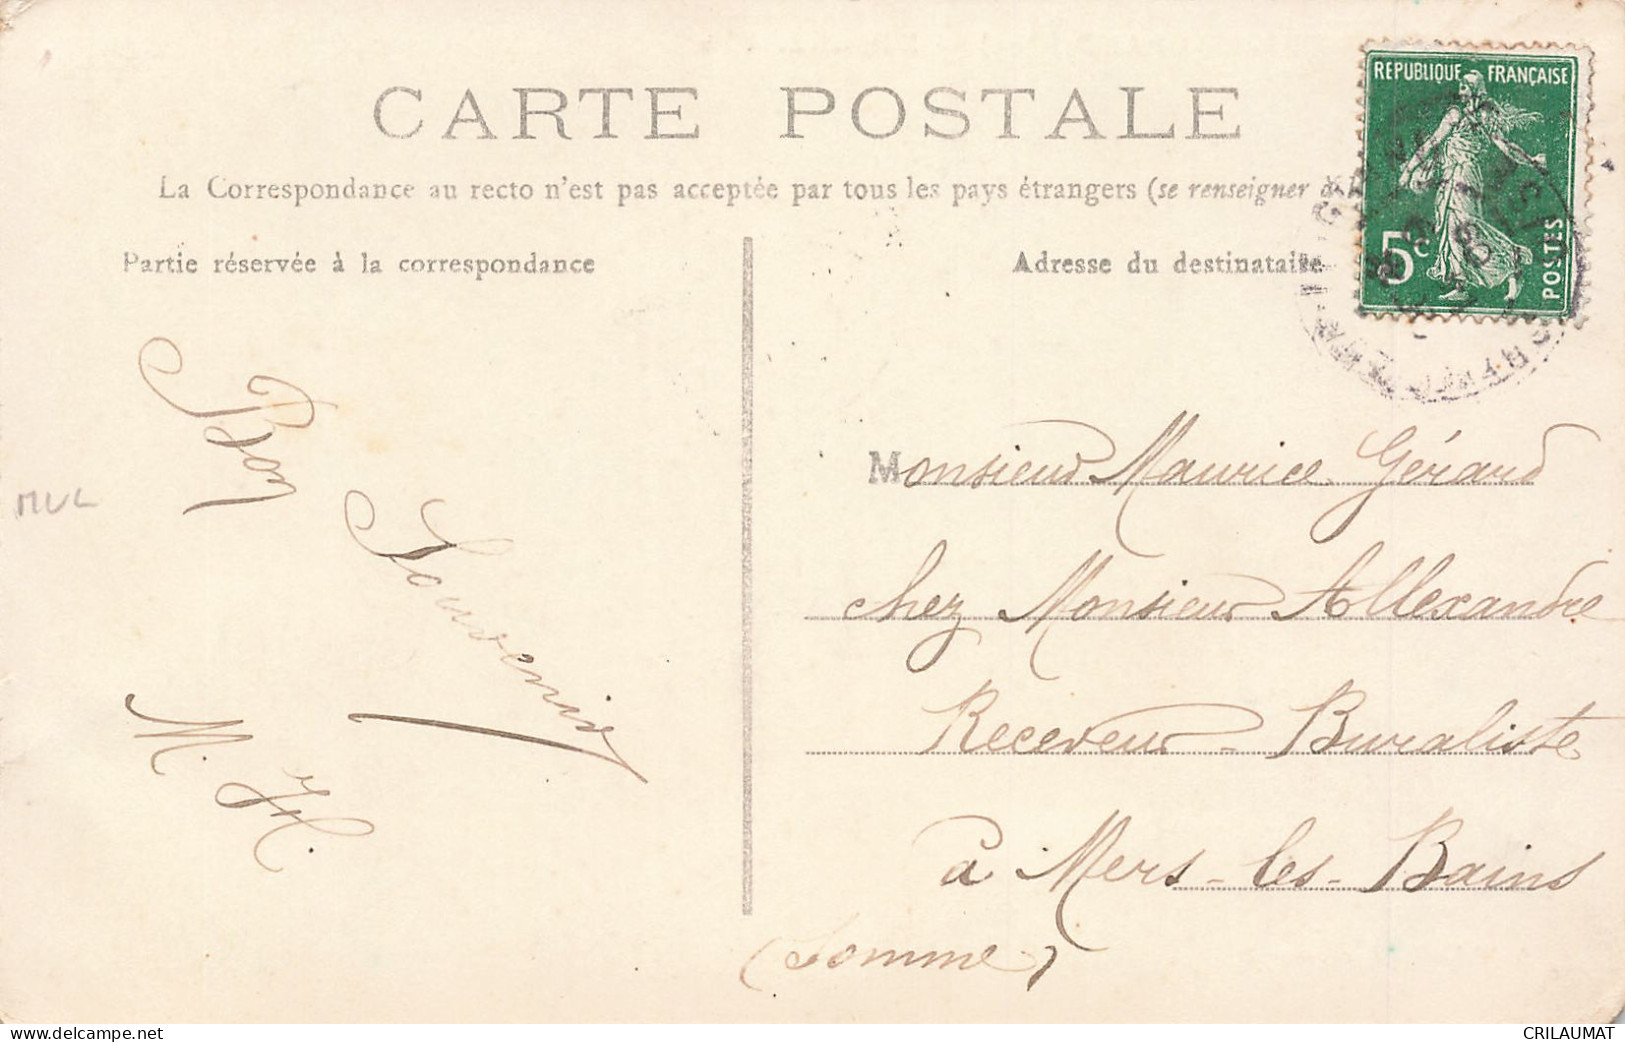 CARTE POSTALE
La Correspondance au recto n'est pas acceptée par tous les pays étrangers (se renseigner
Partie réservée à la correspondance
Adresse du destinataire
REPUBLIQUE FRANÇAISE
5c
POSTES
Bon
Souvenir
M. H.
MUL
Monsieur Maurice Gérard
chez Monsieur Allexandre
Receveur-Buraliste
à Mers-les-Bains
(Somme)
delcampe.net
CRILAUMAT